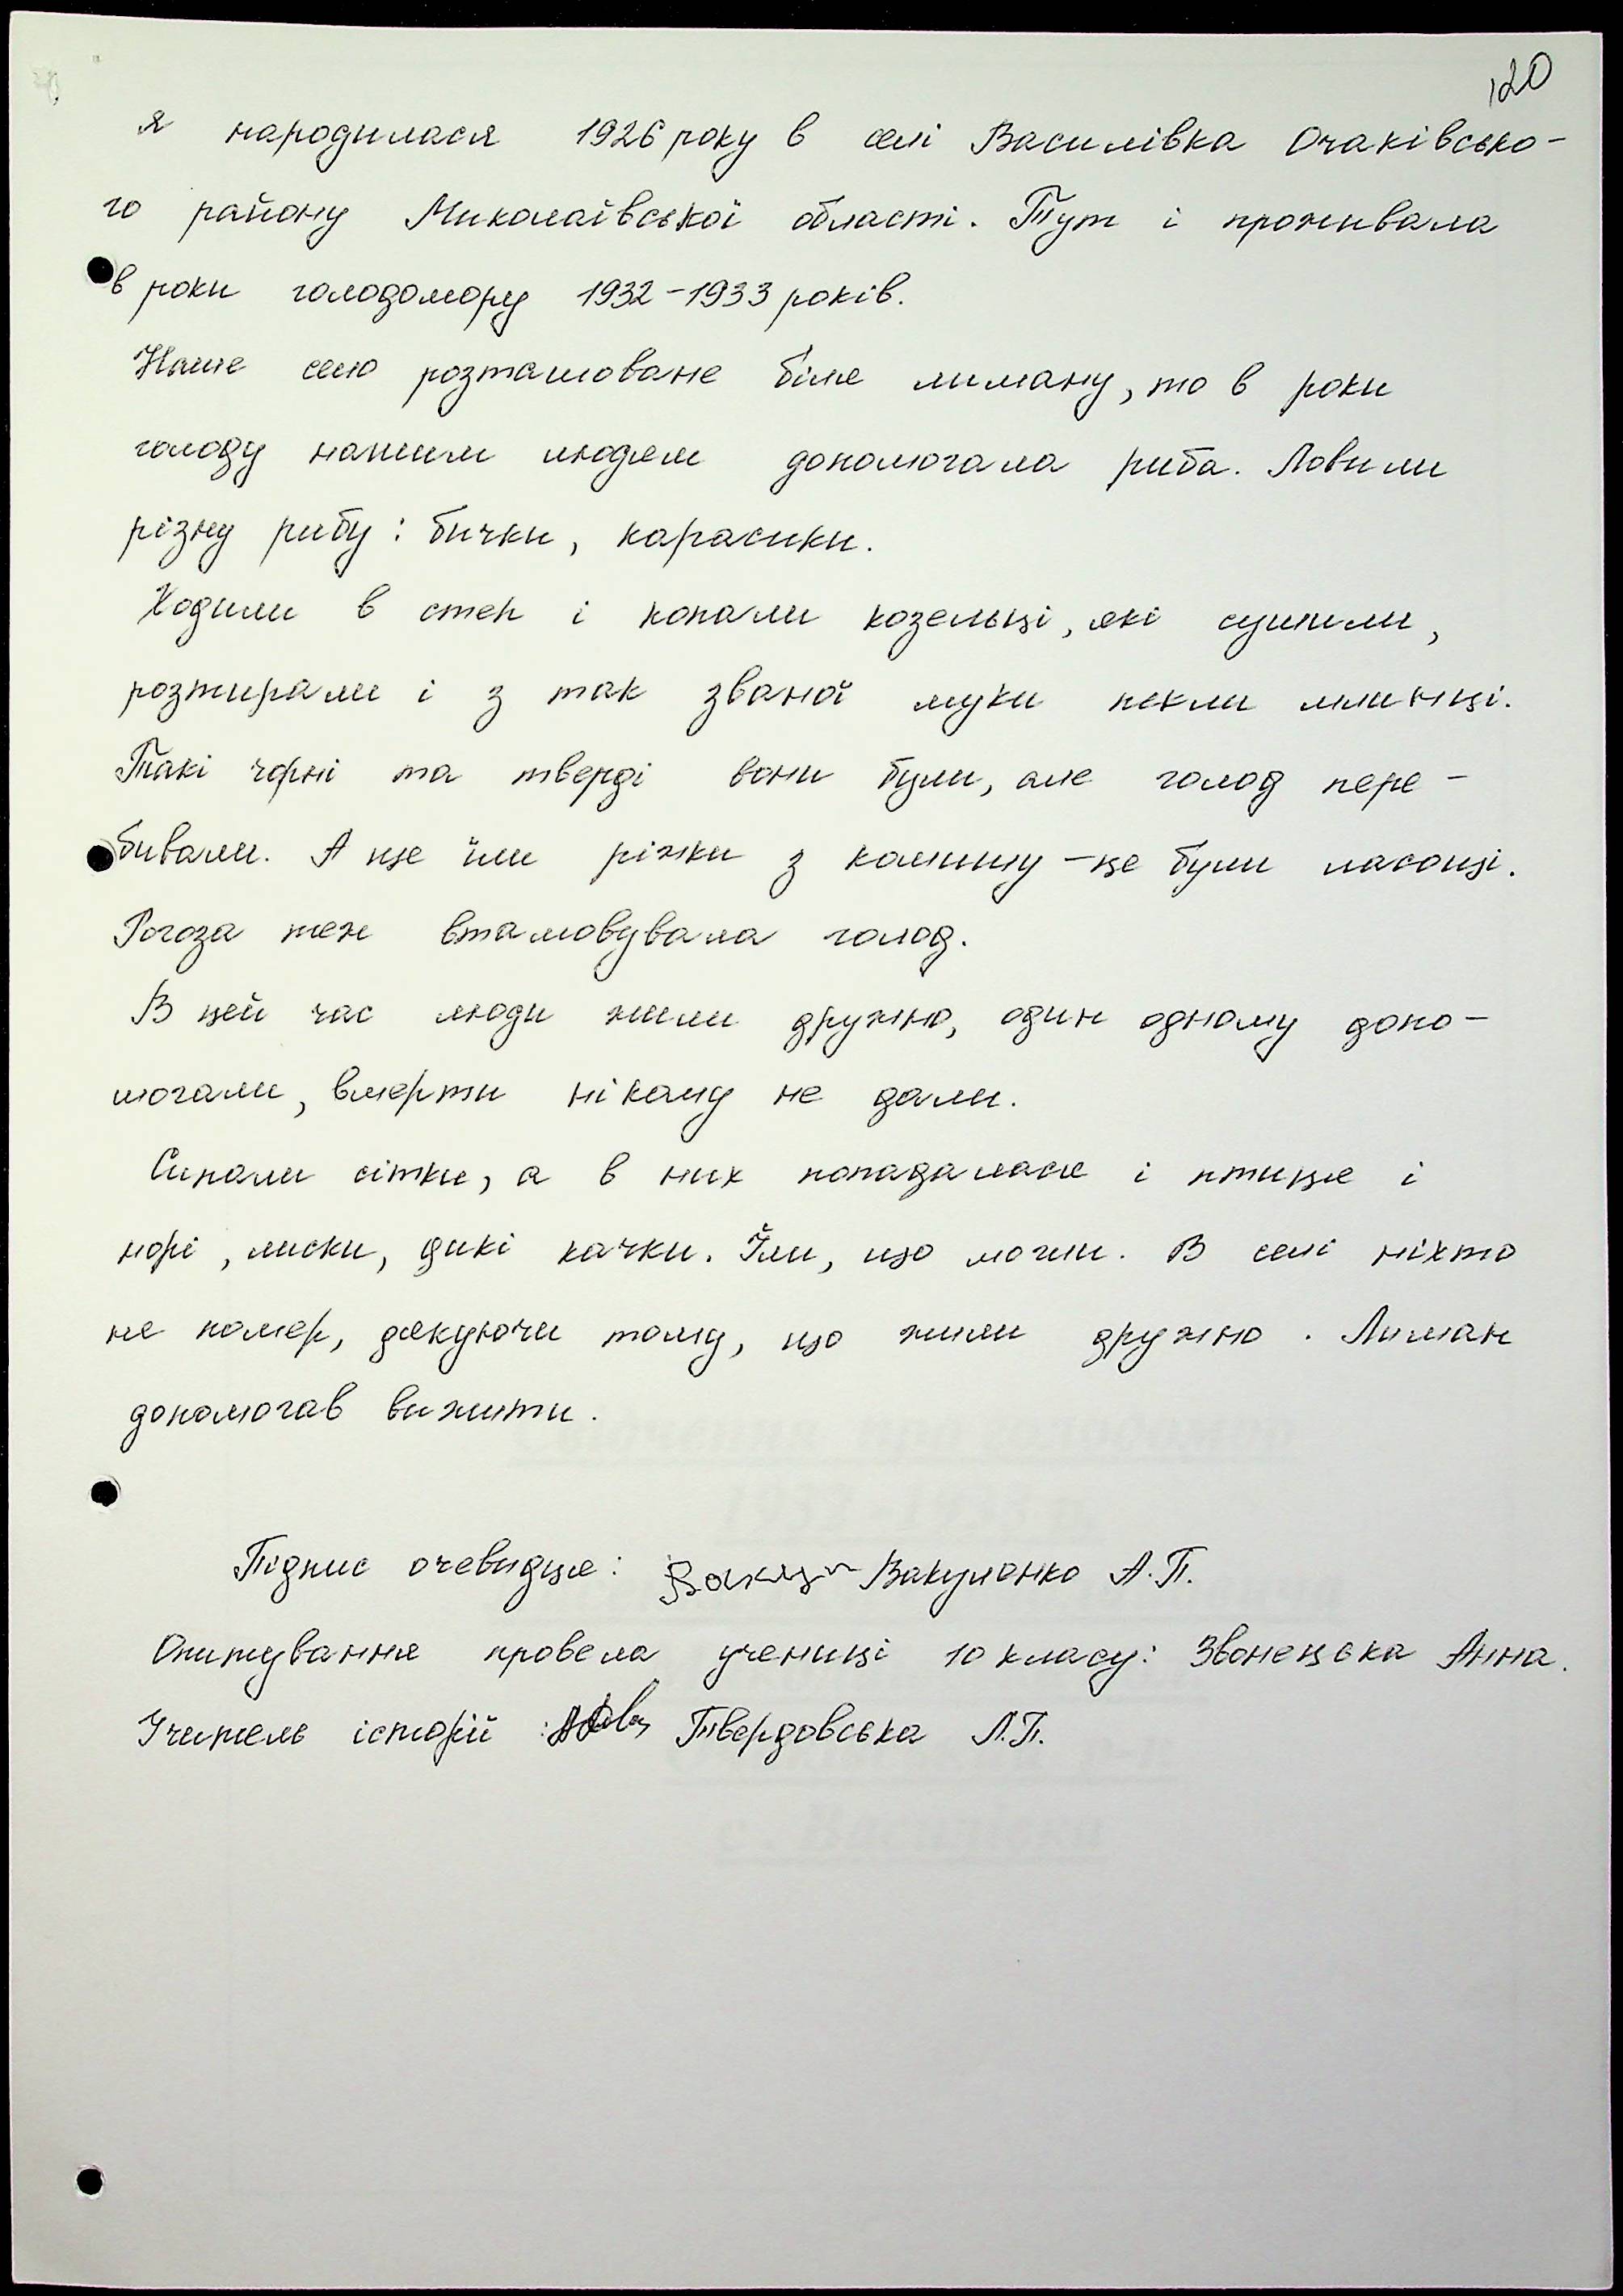 120
я народилася 1926 року в селі Василівка Очаківсько-
го району Миколаївської області. Тут і проживала
в роки голодомору 1932-1933 років.
Наше село розташоване біля лиману, то в роки
голоду нашим людям допомогала риба. Ловили
різну рибу: бички, карасики.
Ходили в степ і копали козельці, які сушили,
розтирали і з так званої муки пекли млинці.
Такі чорні та тверді вони були, але голод пере-
бивали. А ще їли ріжки з камишу - це були ласощі.
Рогоза теж втамовувала голод.
В цей час люди жили дружно, один одному допо-
могали, вмерти нікому не дали.
Сипали сітки, а в них попадалася і птиця і
норі, лиски, дикі качки. Їли, що могли. В селі ніхто
не помер, дякуючи тому, що жили дружно. Лиман
допомогав вижити.
Підпис очевидця: Вакул Вакуленко А.П.
Опитування провела учениці 10 класу: Звонецька Анна.
Учитель історій: Твердовська Л.П.